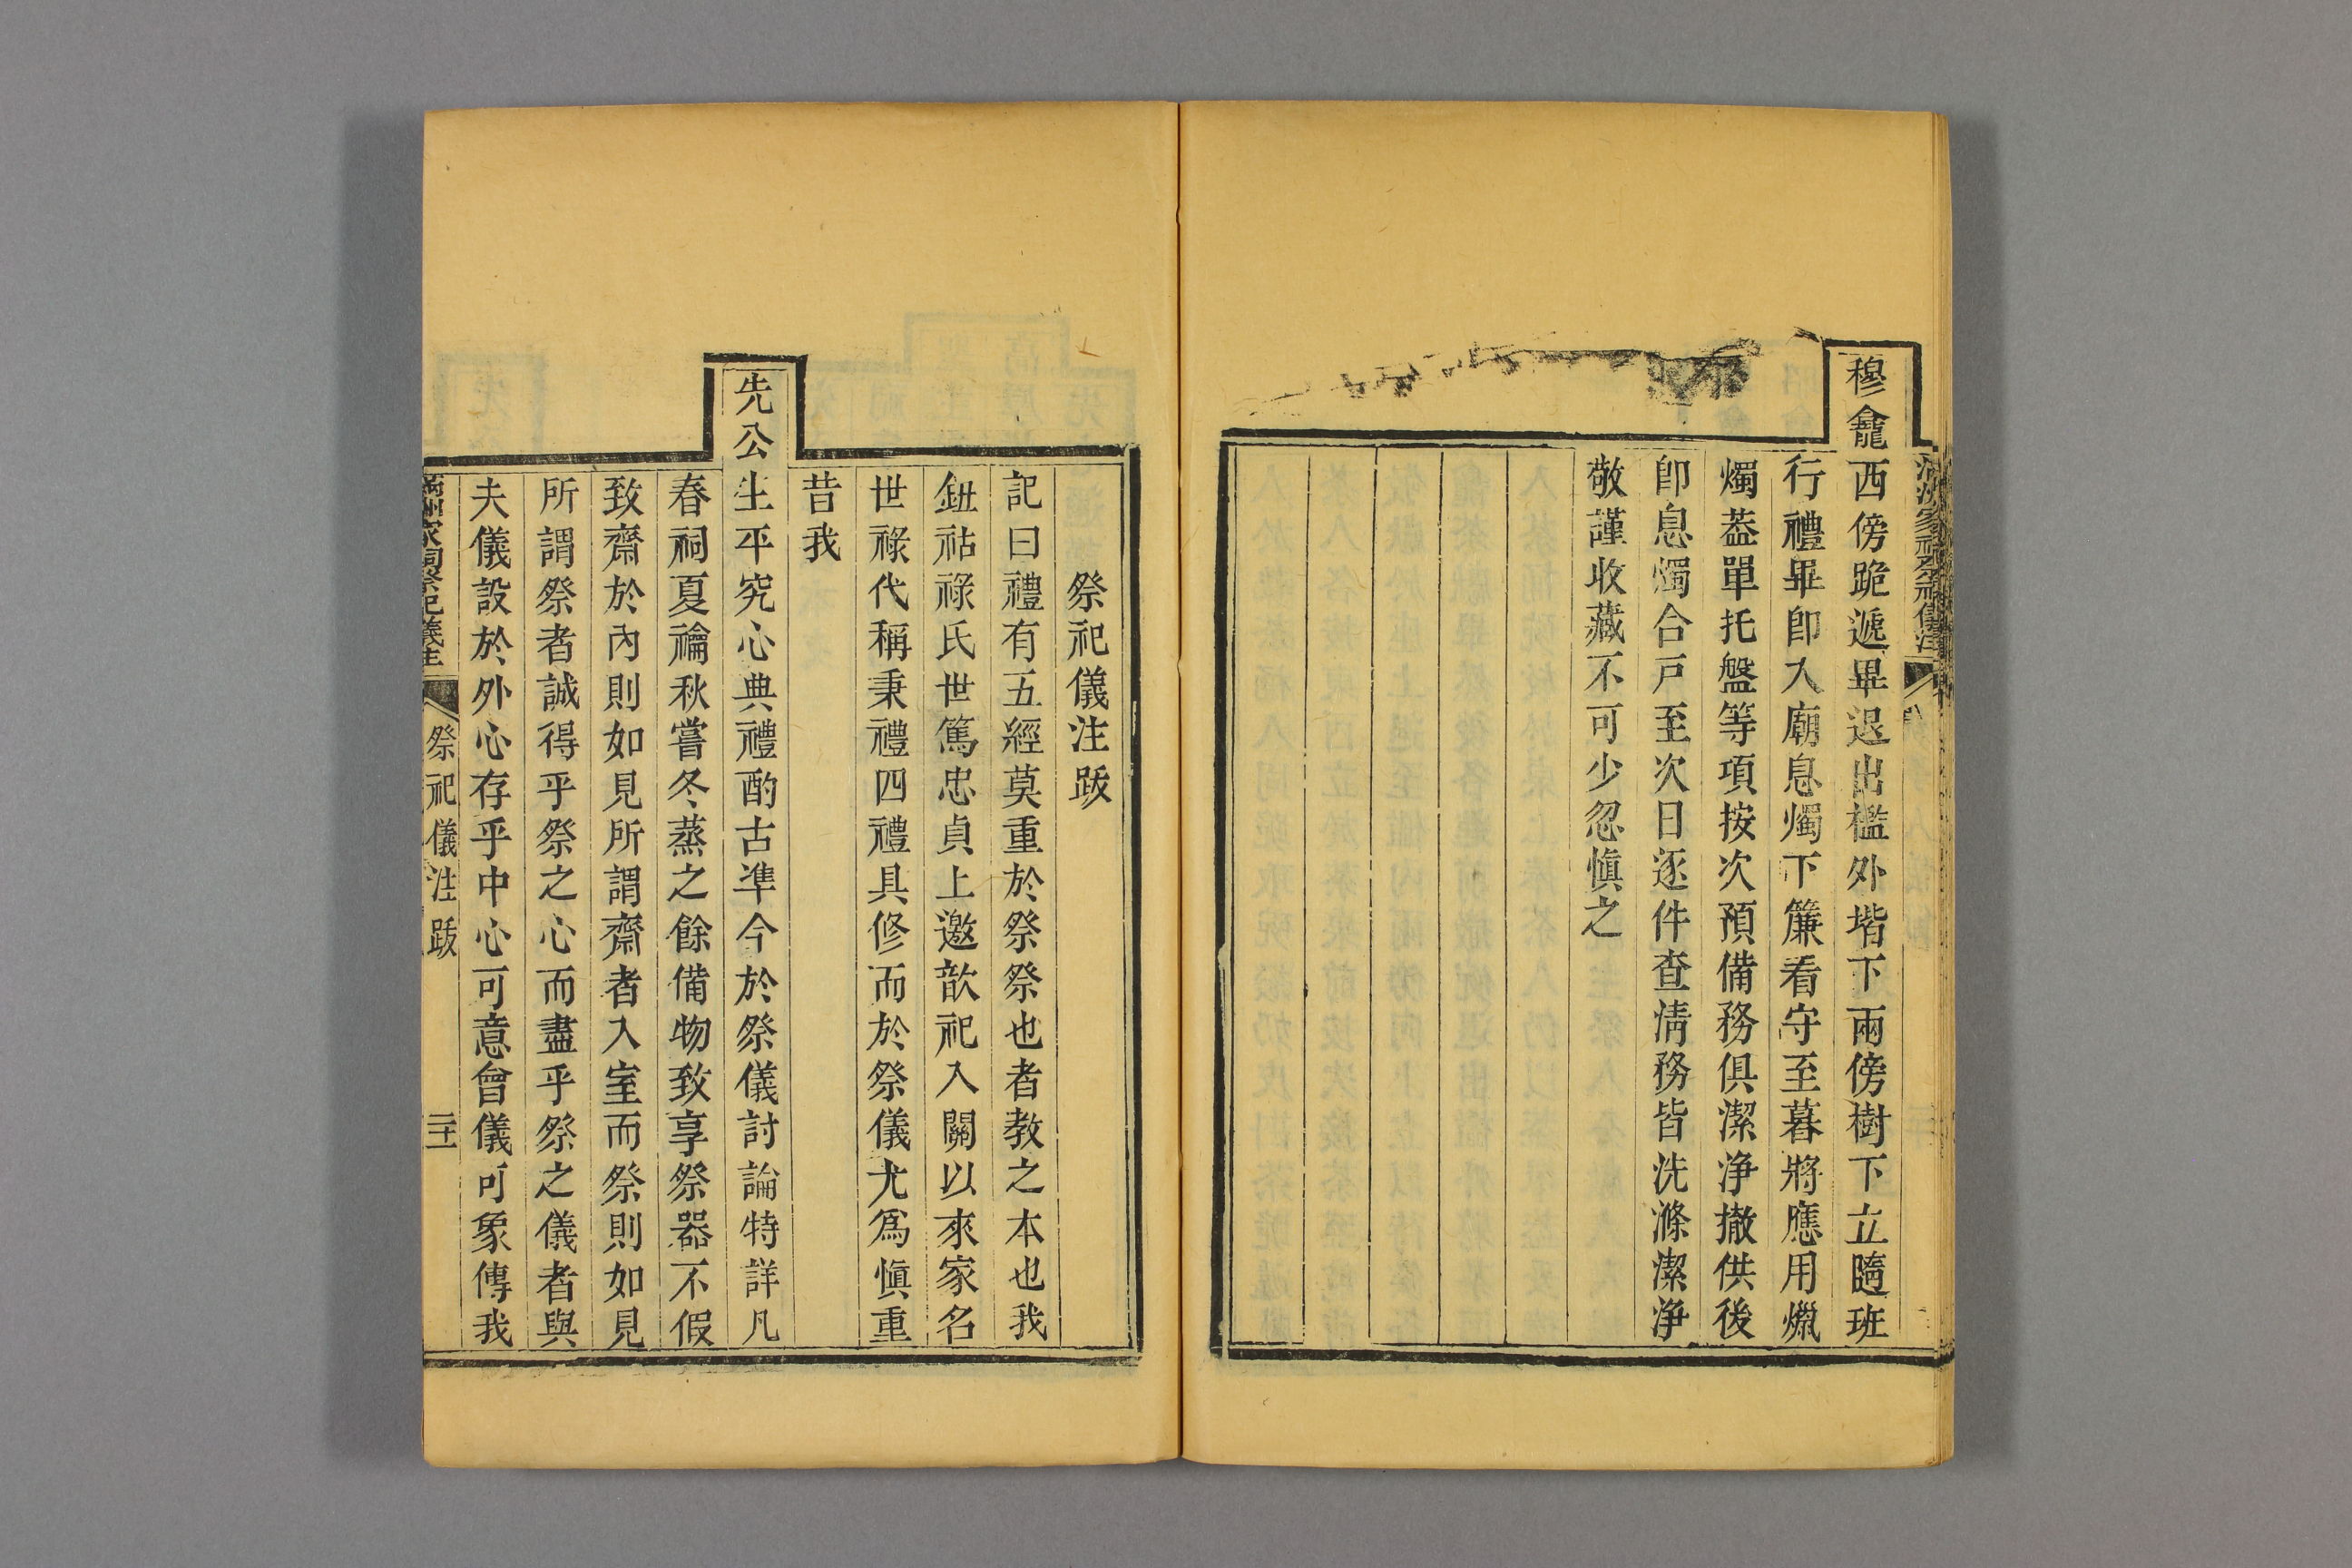 穆龕西傍跪遞畢退出檻外堦下兩傍樹下立隨班
行禮畢卽入廟息燭下簾看守至暮將應用爉
燭葢單托盤等項按次預備務俱潔净撤供後
卽息燭合戸至次日逐件查淸務皆洗滌潔净
敬謹收藏不可少忽愼之
祭祀儀注跋
記曰禮有五經莫重於祭祭也者教之本也我
鈕祜祿氏世篤忠貞上邀歆祀入關以來家名
世祿代稱秉禮四禮具修而於祭儀尤爲愼重
昔我
先公生平究心典禮酌古準今於祭儀討論特詳凡
春祠夏禴秋嘗冬蒸之餘備物致享祭器不假
致齋於內則如見所謂齋者入室而祭則如見
所謂祭者誠得乎祭之心而盡乎祭之儀者與
夫儀設於外心存乎中心可意會儀可象傳我
滿洲家祠祭祀儀注
祭祀儀注跋
二十一